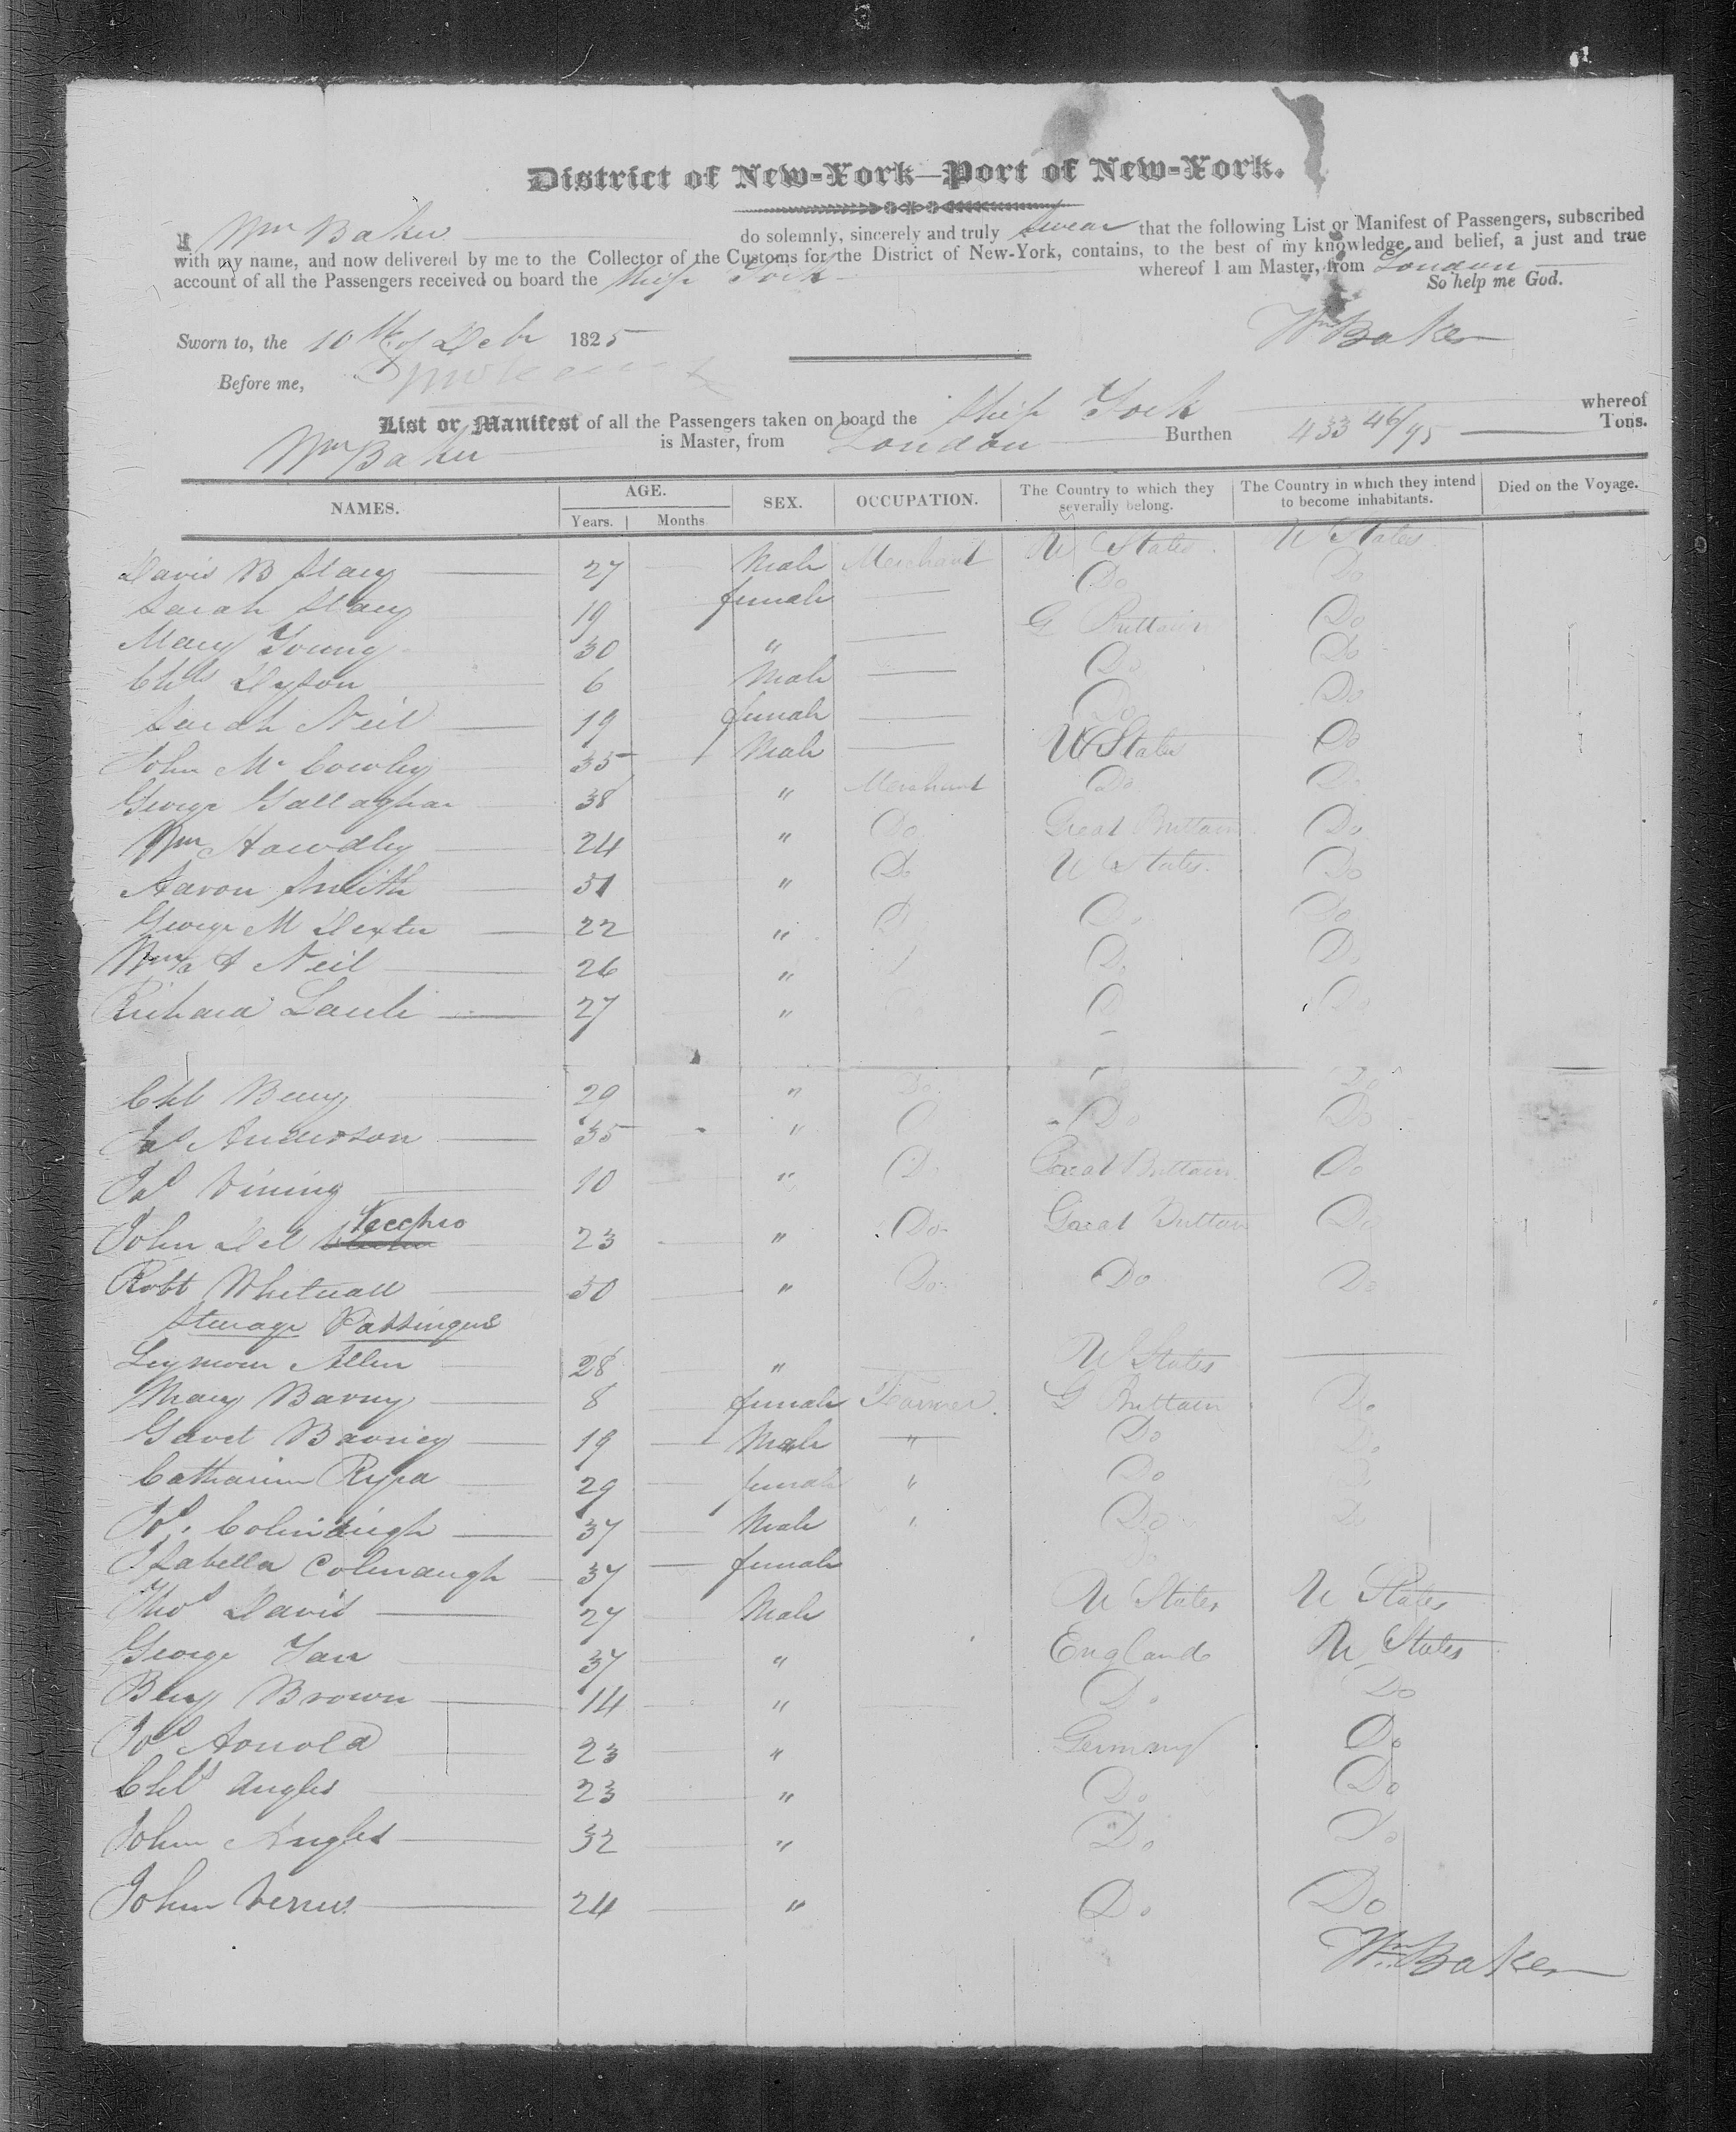 District of New-York—Port of New-York.
I Wm Baker do solemnly, sincerely and truly swear that the following List or Manifest of Passengers, subscribed
with my name, and now delivered by me to the Collector of the Customs for the District of New-York, contains, to the best of my knowledge and belief, a just and true
account of all the Passengers received on board the Ship York whereof I am Master, from London
So help me God.
Wm Baker
Sworn to, the 10th of Decbr 1825
Before me,
List or Manifest of all the Passengers taken on board the Ship York whereof
Wm Baker is Master, from London Burthen 433 46/95 Tons.
NAMES. AGE. SEX. OCCUPATION. The Country to which they severally belong. The Country in which they intend to become inhabitants. Died on the Voyage.
Years. Months
Davis B Stacy 27 Male Merchant U States U States
Sarah Stacy 19 female Do Do
Mary Young 30 " G Brittain Do
Chls Dyson 6 Male Do Do
Sarah Neil 19 female Do Do
John Mc Cowley 35 Male U States Do
George Gallaghar 38 " Merchant Do Do
Wm Hawdley 24 " Do Great Brittain Do
Aaron Smith 31 " Do U States Do
George M Dexter 22 " D Do Do
Wm A Neil 26 " Do Do
Richard 27 " D Do
Chs Berry 29 " Do Do
Jas Anderson 35 " Do Do
Jas Vining 10 " D Great Brittain Do
John Del Vecchio 23 " Do Great Brittain Do
Robt Whitwall 30 " Do Do Do
Sterage Passingers
Seymour Allen 28 " U States
Mary Barny 8 female Farmer G Brittain Do
Garet Barney 19 Male " Do Do
Catharine Rypa 29 female " Do
Jos. Colmaugh 37 Male " Do Do
Isabella Colmaugh 37 female
Thos Davis 27 Male U States U States
George Tan 37 " England U States
Benj Brown 14 " Do Do
Jos Arnold 23 " Germany Do
Chls Angles 23 " Do Do
John Angles 32 " Do Do
John Verus 24 " Do Do
Wm Baker